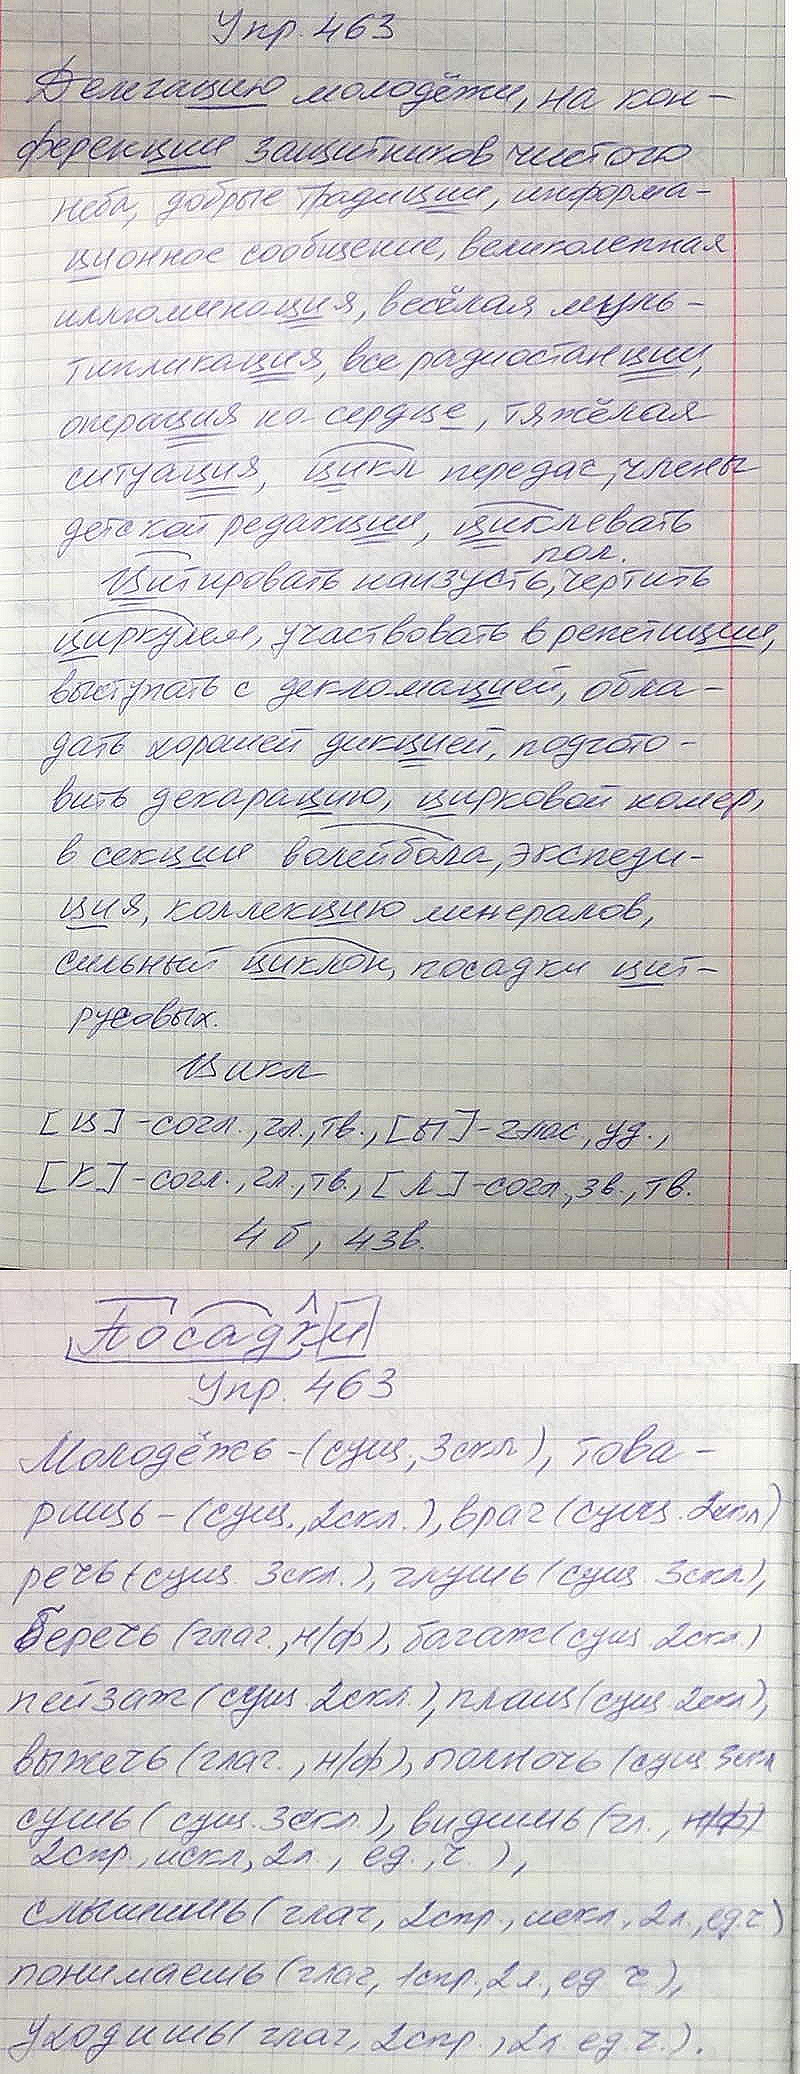 Упр. 463
Делегацию молодёжи, на кон-
ференции защитников чистого
неба, добрые традиции, информа-
ционное сообщение, великолепная
иллюминация, весёлая муль-
типликация, все радиостанции,
операция на сердце, тяжёлая
ситуация, цикл передач, члены
детской редакции, циклевать
пол.
Цитировать наизусть, чертить
циркулем, участвовать в репетиции,
выступать с декломацией, обла-
дать хорошей дикцией, подгото-
вить декарацию, цирковой номер,
в секции волейбола, экспеди-
ция, коллекцию минералов,
сильный циклон, посадки цит-
русовых.
Цикл
[Ц] - согл., гл., тв., [Ы] - глас, уд.,
[К] - согл., гл., тв., [Л] - согл, зв., тв.
4 б, 4 зв.
Посадки
Упр. 463
Молодёжь - (сущ, 3 скл), това-
рищь - (сущ., 2 скл.), врач (сущ. 2 скл)
речь (сущ. 3 скл.), глушь (сущ. 3 скл),
Беречь (глаг., н/ф), багаж (сущ. 2 скл.)
пейзаж (сущ. 2 скл.), плащ (сущ 2 скл),
выжечь (глаг., н/ф), полночь (сущ. 3 скл
сушь (сущ. 3 скл.), видишь (гл., н/ф)
2 спр, искл, 2 л., ед., ч.),
слышишь (глаг, 2 спр., искл, 2 л., ед. ч)
понимаешь (глаг, 1 спр, 2 л, ед ч.),
уходишь (глаг, 2 спр., 2 л. ед. ч.).